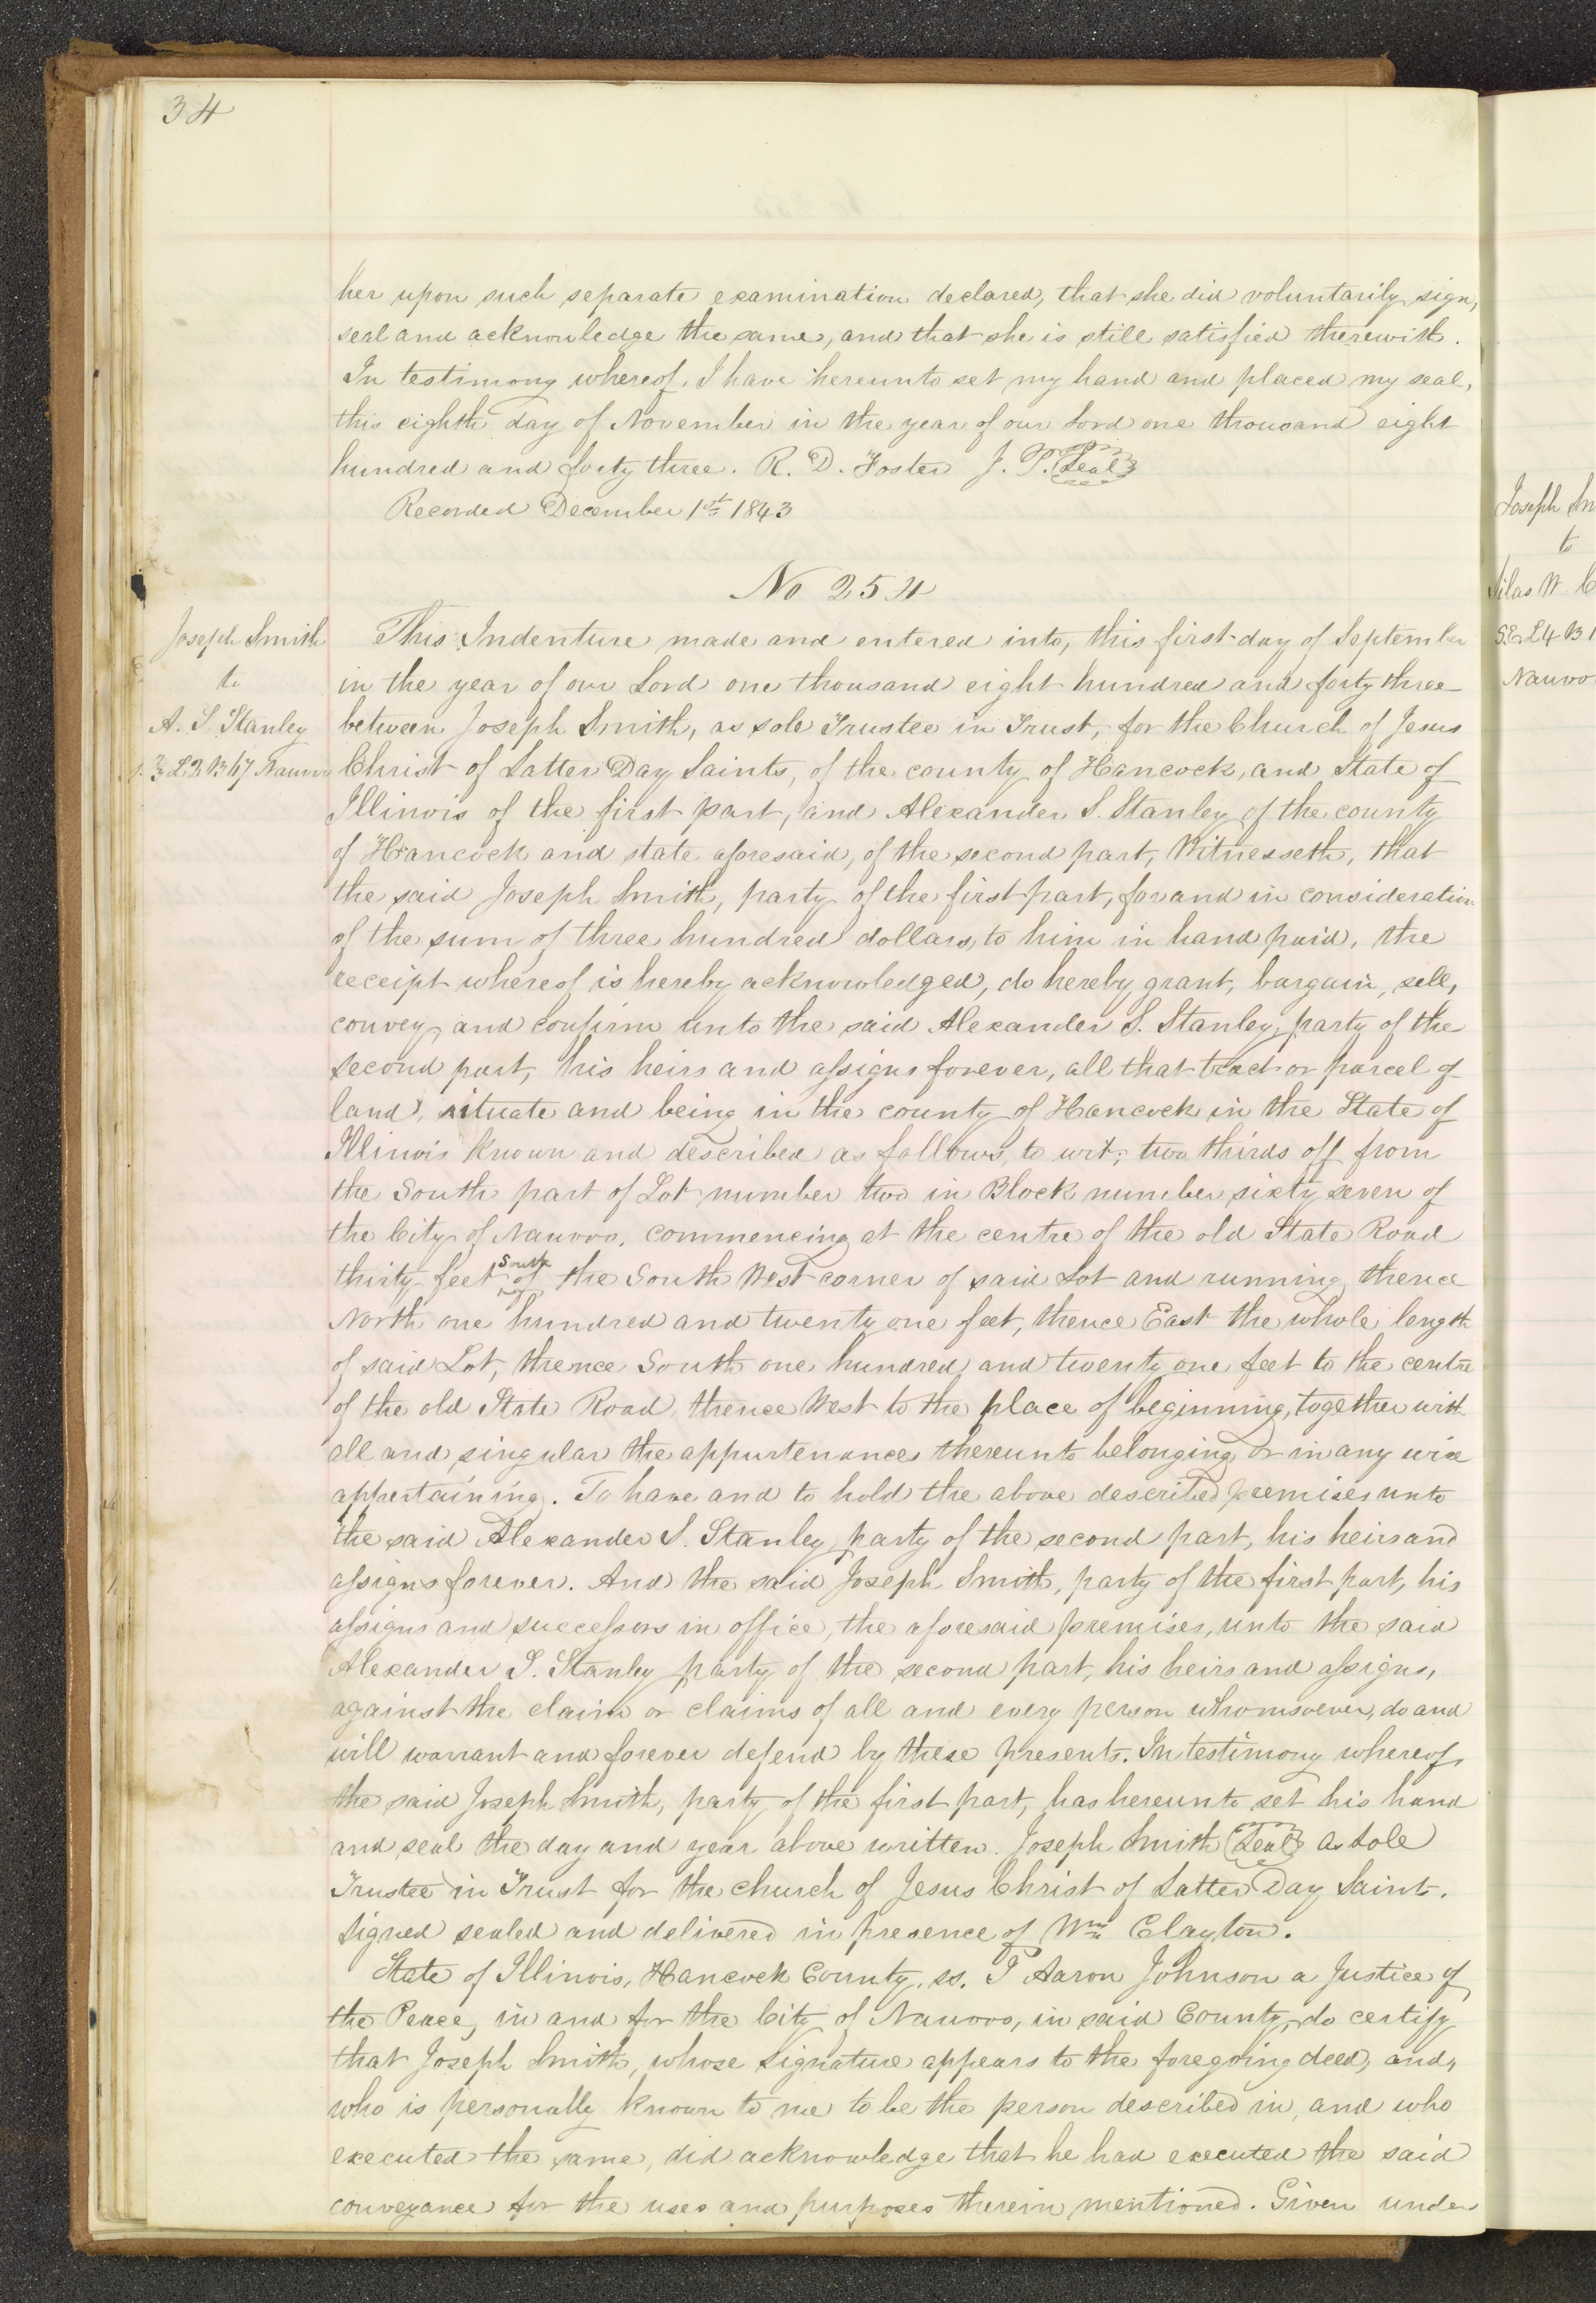 34
her upon such separate examination declared, that she did voluntarily sign,
seal and acknowledge the same, and that she is still satisfied therewith.
In testimony whereof, I have hereunto set my hand and placed my seal,
this eighth day of November in the year of our Lord one thousand eight
hundred and forty three. R. D. Foster J. P. Seal
Recorded December 1st 1843
No 254
Joseph Smith
to
A. S. Stanley
2/3 L2 B 67 Nauvoo
This Indenture made and entered into, this first day of September
in the year of our Lord one thousand eight hundred and forty three
between Joseph Smith, as sole Trustee in Trust, for the Church of Jesus
Christ of Latter Day Saints, of the county of Hancock, and State of
Illinois of the first part, and Alexander S. Stanley of the county
of Hancock and state aforesaid, of the second part, Witnesseth, that
the said Joseph Smith, party of the first part, for and in consideration
of the sum of three hundred dollars, to him in hand paid, the
receipt whereof is hereby acknowledged, do hereby grant, bargain, sell,
convey, and confirm unto the said Alexander S. Stanley, party of the
second part, his heirs and assigns forever, all that tract or parcel of
land, situate and being in the county of Hancock in the State of
Illinois known and described as follows, to wit; two thirds off from
the South part of Lot number two in Block number sixty seven of
the City of Nauvoo, commencing at the centre of the old State Road
thirty feet South of the South West corner of said Lot and running thence
North one hundred and twenty one feet, thence East the whole length
of said Lot, thence South one hundred and twenty one feet to the centre
of the old State Road, thence West to the place of beginning, together with
all and singular the appurtenances thereunto belonging or in any wise
appertaining. To have and to hold the above described premises unto
the said Alexander S. Stanley party of the second part, his heirs and
assigns forever. And the said Joseph Smith, party of the first part, his
assigns and successors in office, the aforesaid premises, unto the said
Alexander S. Stanley party of the second part, his heirs and assigns,
against the claim or claims of all and every person whomsoever, do and
will warrant and forever defend by these presents. In testimony whereof,
the said Joseph Smith, party of the first part, has hereunto set his hand
and seal the day and year above written. Joseph Smith Seal as sole
Trustee in Trust for the church of Jesus Christ of Latter Day Saints.
Signed sealed and delivered in presence of Wm Clayton.
State of Illinois, Hancock County, ss. I Aaron Johnson a Justice of
the Peace, in and for the City of Nauvoo, in said County, do certify
that Joseph Smith, whose signature appears to the foregoing deed, and,
who is personally known to me to be the person described in, and who
executed the same, did acknowledge that he had executed the said
conveyance for the uses and purposes therein mentioned. Given under
Joseph Sm
to
Silas W. C
SE L4 B1
Nauvoo